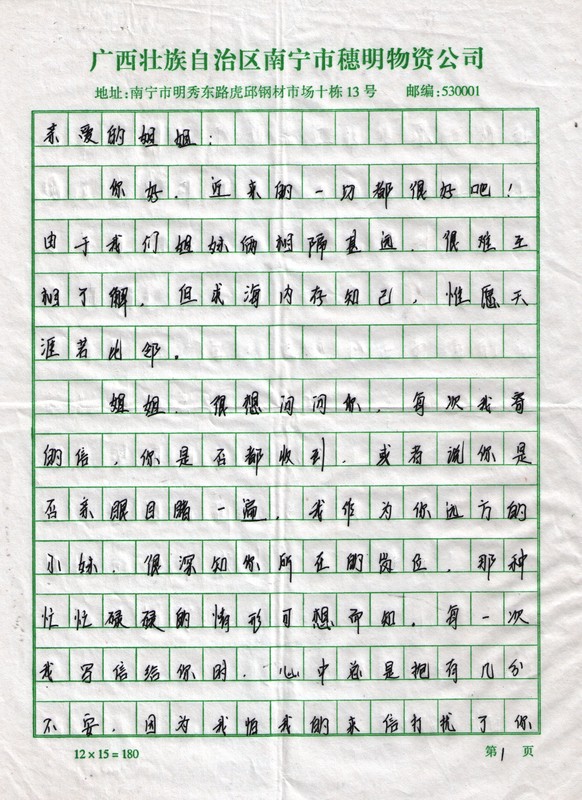 广西壮族自治区南宁市穗明物资公司
地址:南宁市明秀东路虎邱钢材市场十栋13号 邮编:530001
亲爱的姐姐:
你好.近来的一切都很好吧!
由于我们姐妹俩相隔甚远.很难互
相了解.但求海内存知己,惟愿天
涯若比邻。
姐姐.很想问问你.每次我寄
的信.你是否都收到.或者说你是
否亲眼目睹一遍.我作为你远方的
小妹.很深知你所在的岗位.那种
忙忙碌碌的情形可想而知.每一次
我写信给你时.心中总是抱有几分
不安.因为我怕我的来信打扰了你
12×15=180 第1页